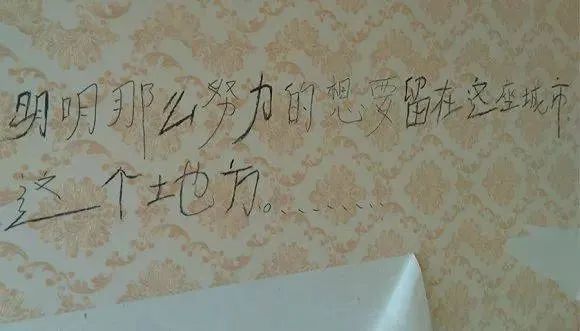 明明那么努力的想要留在这座城市
这一个地方。………